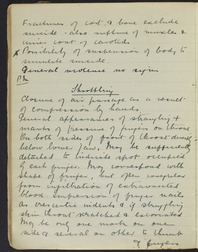 Fractures of cart & bone exclude
suicide also rupture of muscles &
inner coat of carotids
x Possibility of suspension of body to
simulate suicide.
General violence no signs
Throttling
Closure of air passage as a result
of compression by hands.
General appearances of strangling &
marks of pressure of fingers on throat
on both sides of front of throat and
below lower jaw. May be sufficiently
detached to indicate spot occupied
by each finger. May correspond with
shape of finger, but often complex
from infiltration of extravasated
blood. Impression of finger nails
as crescentic indents & if struggling
skin throat scratched & excoriated
May be only one mark on one
side & several on other to thumb
& fingers